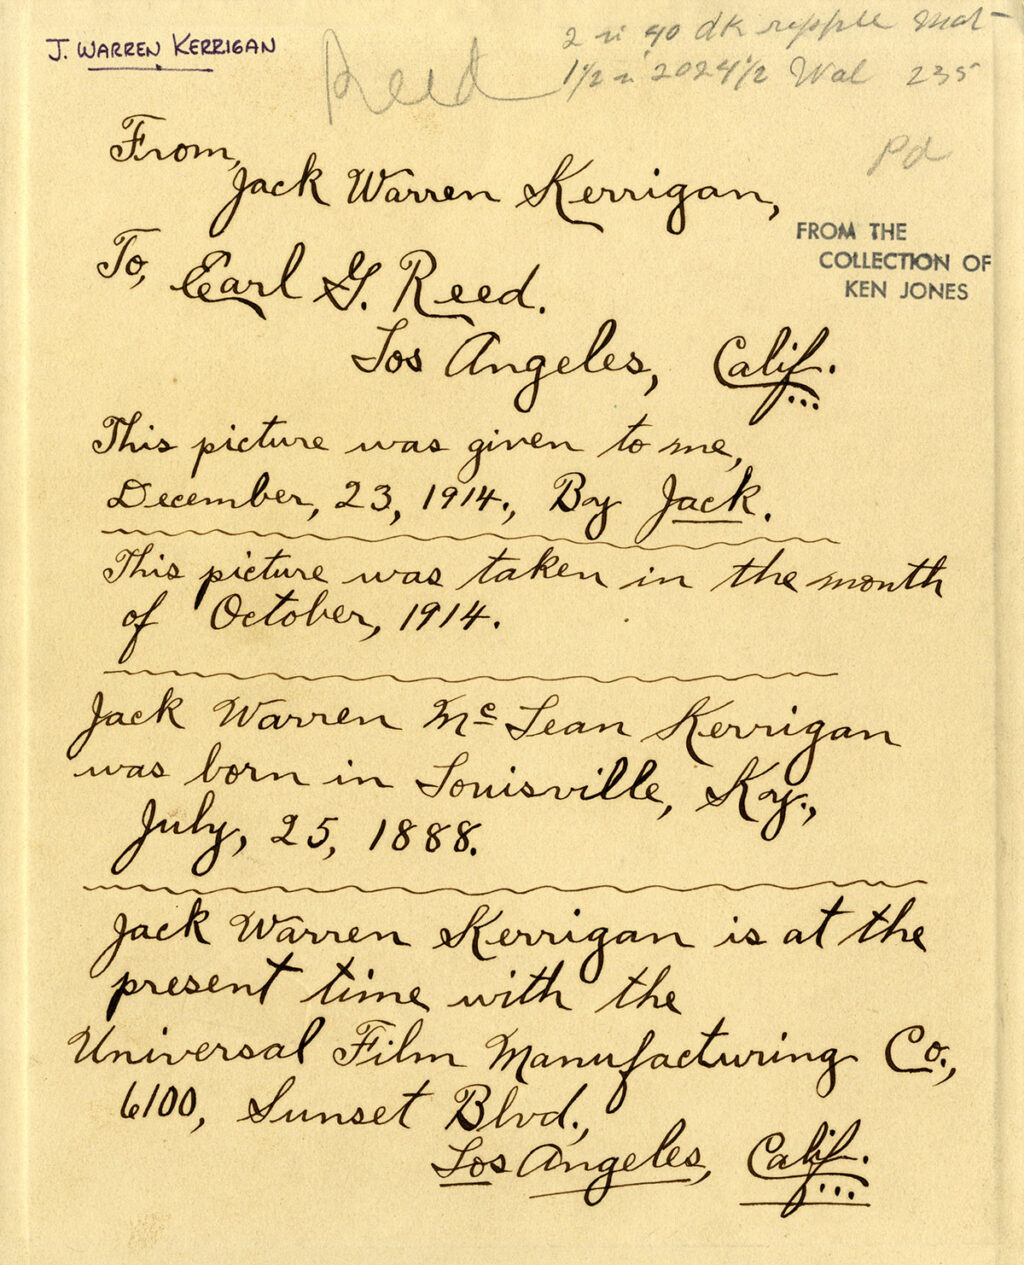 J. WARREN KERRIGAN
Reed
2 in 90 dk ripple Mat
1½ in 2024½ Wal 235
Pd
From,
Jack Warren Kerrigan,
FROM THE
COLLECTION OF
KEN JONES
To, Earl G. Reed.
Los Angeles, Calif.
This picture was given to me,
December, 23, 1914., By Jack.
This picture was taken in the month
of October, 1914.
Jack Warren McLean Kerrigan
was born in Louisville, Ky.,
July, 25, 1888.
Jack Warren Kerrigan is at the
present time with the
Universal Film Manufacturing Co.,
6100, Sunset Blvd.,
Los Angeles, Calif.